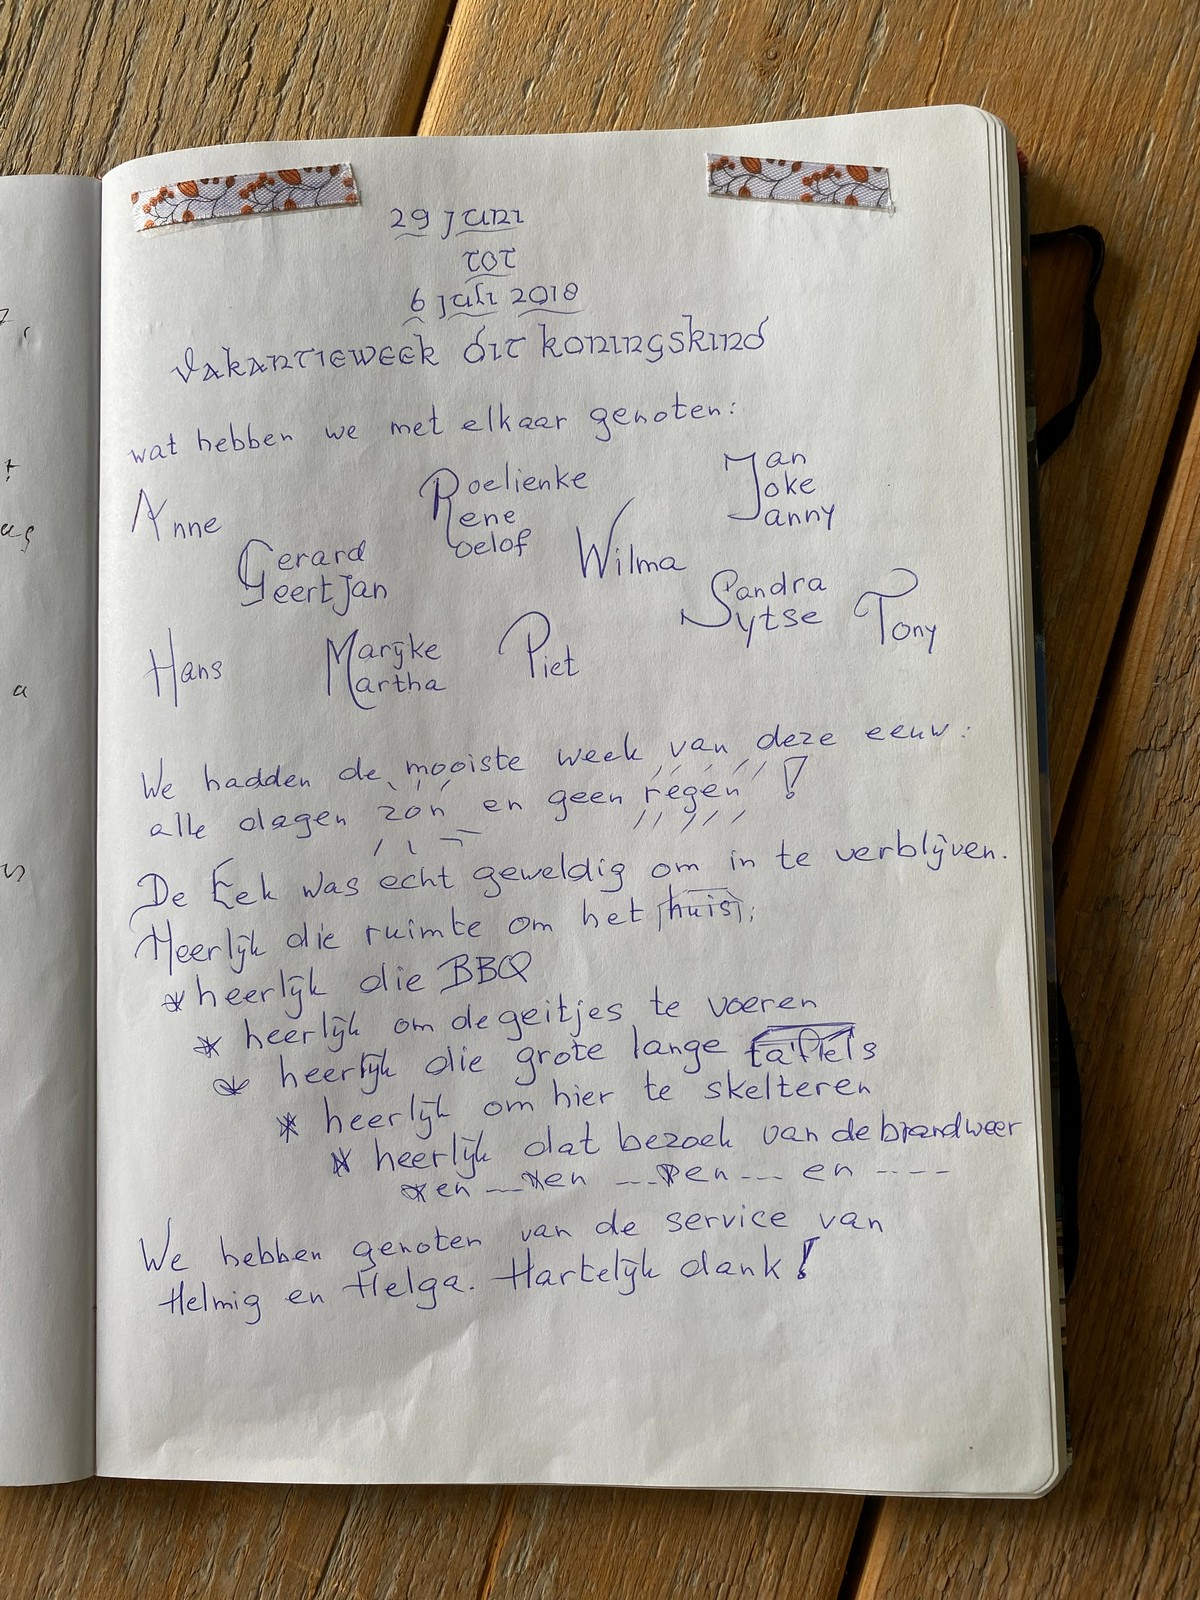 29 juni
tot
6 juli 2018
Vakantieweek dit koningskind
wat hebben we met elkaar genoten:
Anne
Roelienke
Rene
Roelof
Jan
Joke
Janny
Gerard
Geertjan
Wilma
Sandra
Sytse
Tony
Hans
Marijke
Martha
Piet
We hadden de mooiste week van deze eeuw:
alle dagen zon en geen regen!
De Eek was echt geweldig om in te verblijven.
Heerlijk die ruimte om het huis;
* heerlijk die BBQ
* heerlijk om de geitjes te voeren
* heerlijk die grote lange tafels
* heerlijk om hier te skelteren
* heerlijk dat bezoek van de brandweer
* en --- * en --- * en --- en ----
We hebben genoten van de service van
Helmig en Helga. Hartelijk dank!